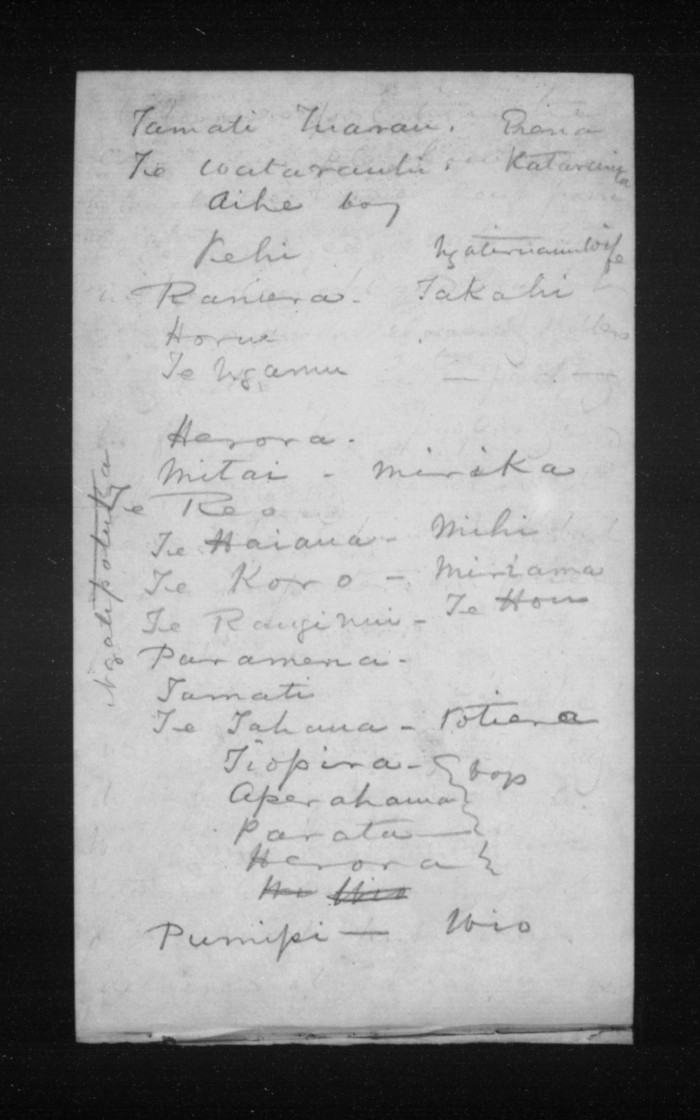 Tamati Marau. Erena
Te Watarauhi. Katarina
Aihe boy
Pehi wife
Raniera. Takahi
Horue
Te Ngamu
Herora.
Mitai - Mirika
Te Reo
Te Haiana - Mihi
Te Koro - Miriama
Te Rauginui - Te Hou
Paramena.
Tamati
Te Tahana - Potiera
Tiopira - boys
Aperahama
Parata
Herora
Pumipi - Wio
Ngatipotukea